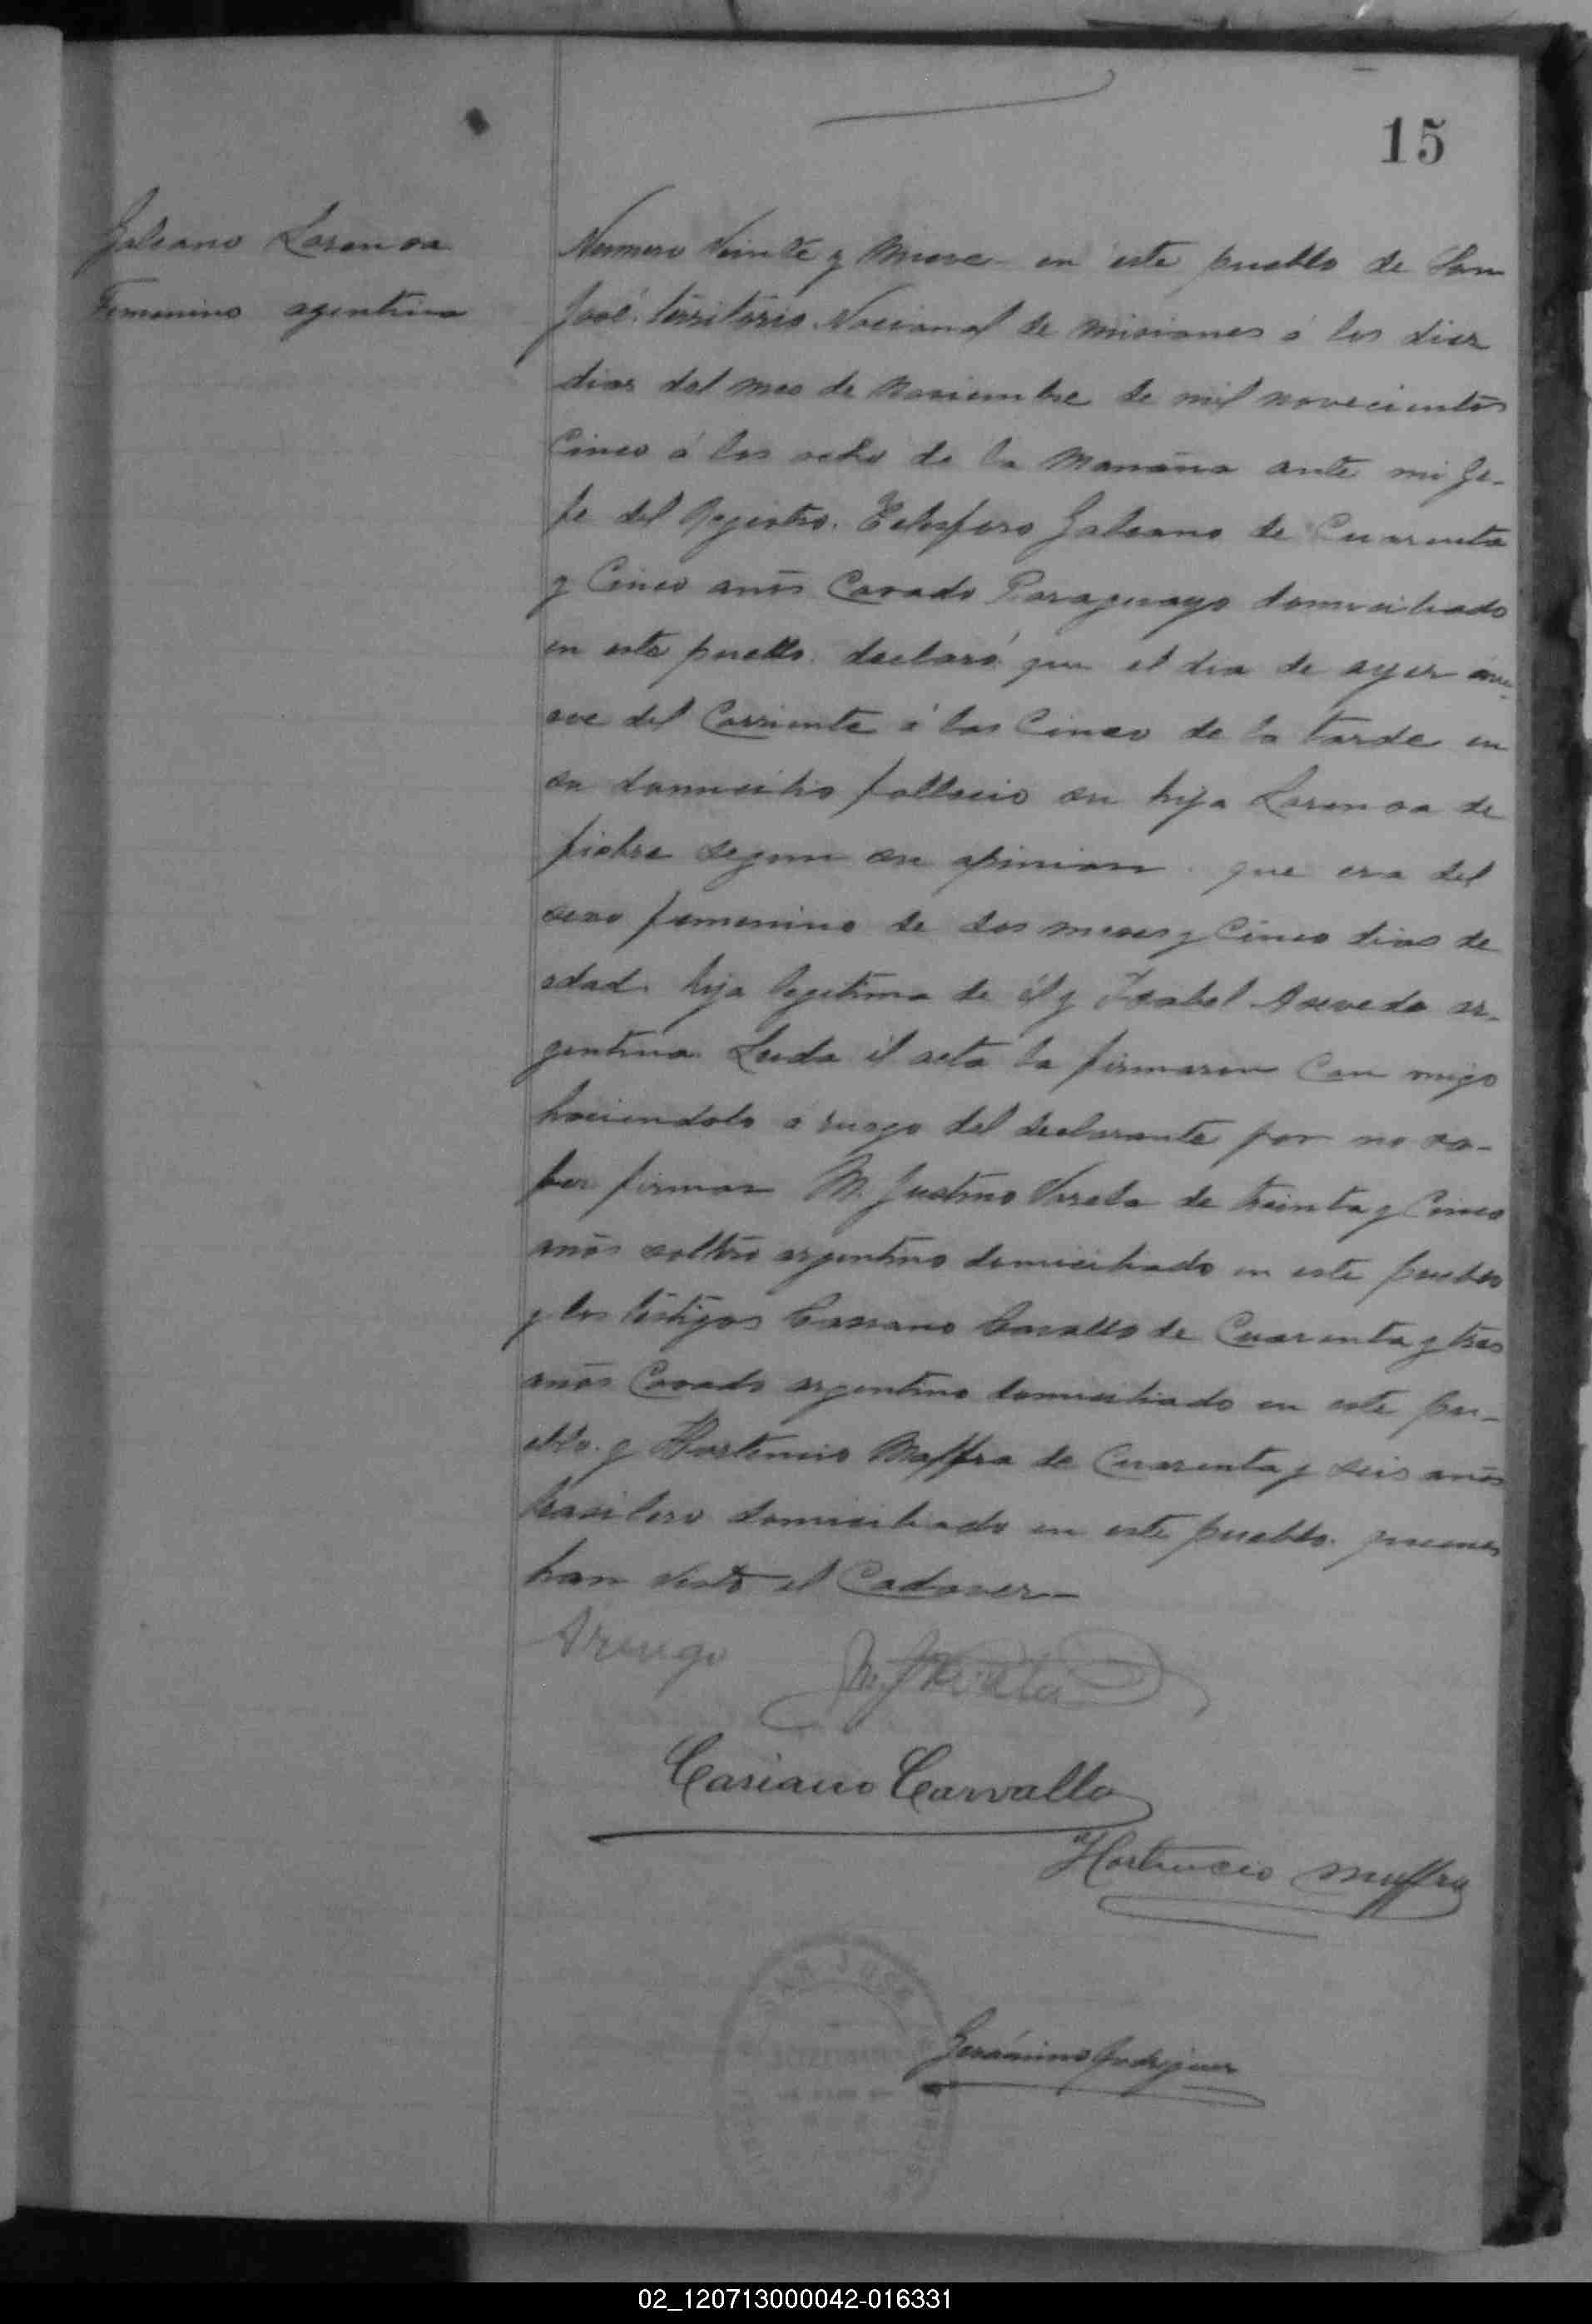 15
Galeano Lorensa
Femenino agentina
Numero Veinte y Nueve en este pueblo de San
José. territorio Nacional de misiones á los dies
dias del mes de Noviembre de mil novecientos
Cinco á las ocho de la Mañana ante mi Je-
fe del Registro. Telesforo Galeano de Cuarenta
y Cinco años Casado Paraguayo domisiliado
en este pueblo. declaró que el dia de ayer nue-
ve del Corriente á las Cinco de la tarde en
su domisilio fallesio su hija Lorensa de
fiebre segun su opinion. que era del
sexo femenino de dos meses y Cinco dias de
edad. hija legitima de él y Isabel Asevedo ar-
gentina. Leida el acta la firmaron Con migo
haciendolo a ruego del declarante por no sa-
ber firmar M. Justino Varela de treinta y Cinco
años soltero argentino domisiliado en este pueblo
y los testigos Casiano Carvallo de Cuarenta y tres
años Casado argentino domisiliado en este pu-
eblo. y Hortencio Maffra de Cuarenta y seis años
brasilero domisiliado en este pueblo. quienes
han visto el Cadaver
A ruego M. J. Varela
Casiano Carvallo
Hortencio Maffra
SAN JOSÉ
Gerónimo Rodriguez
02_120713000042-016331